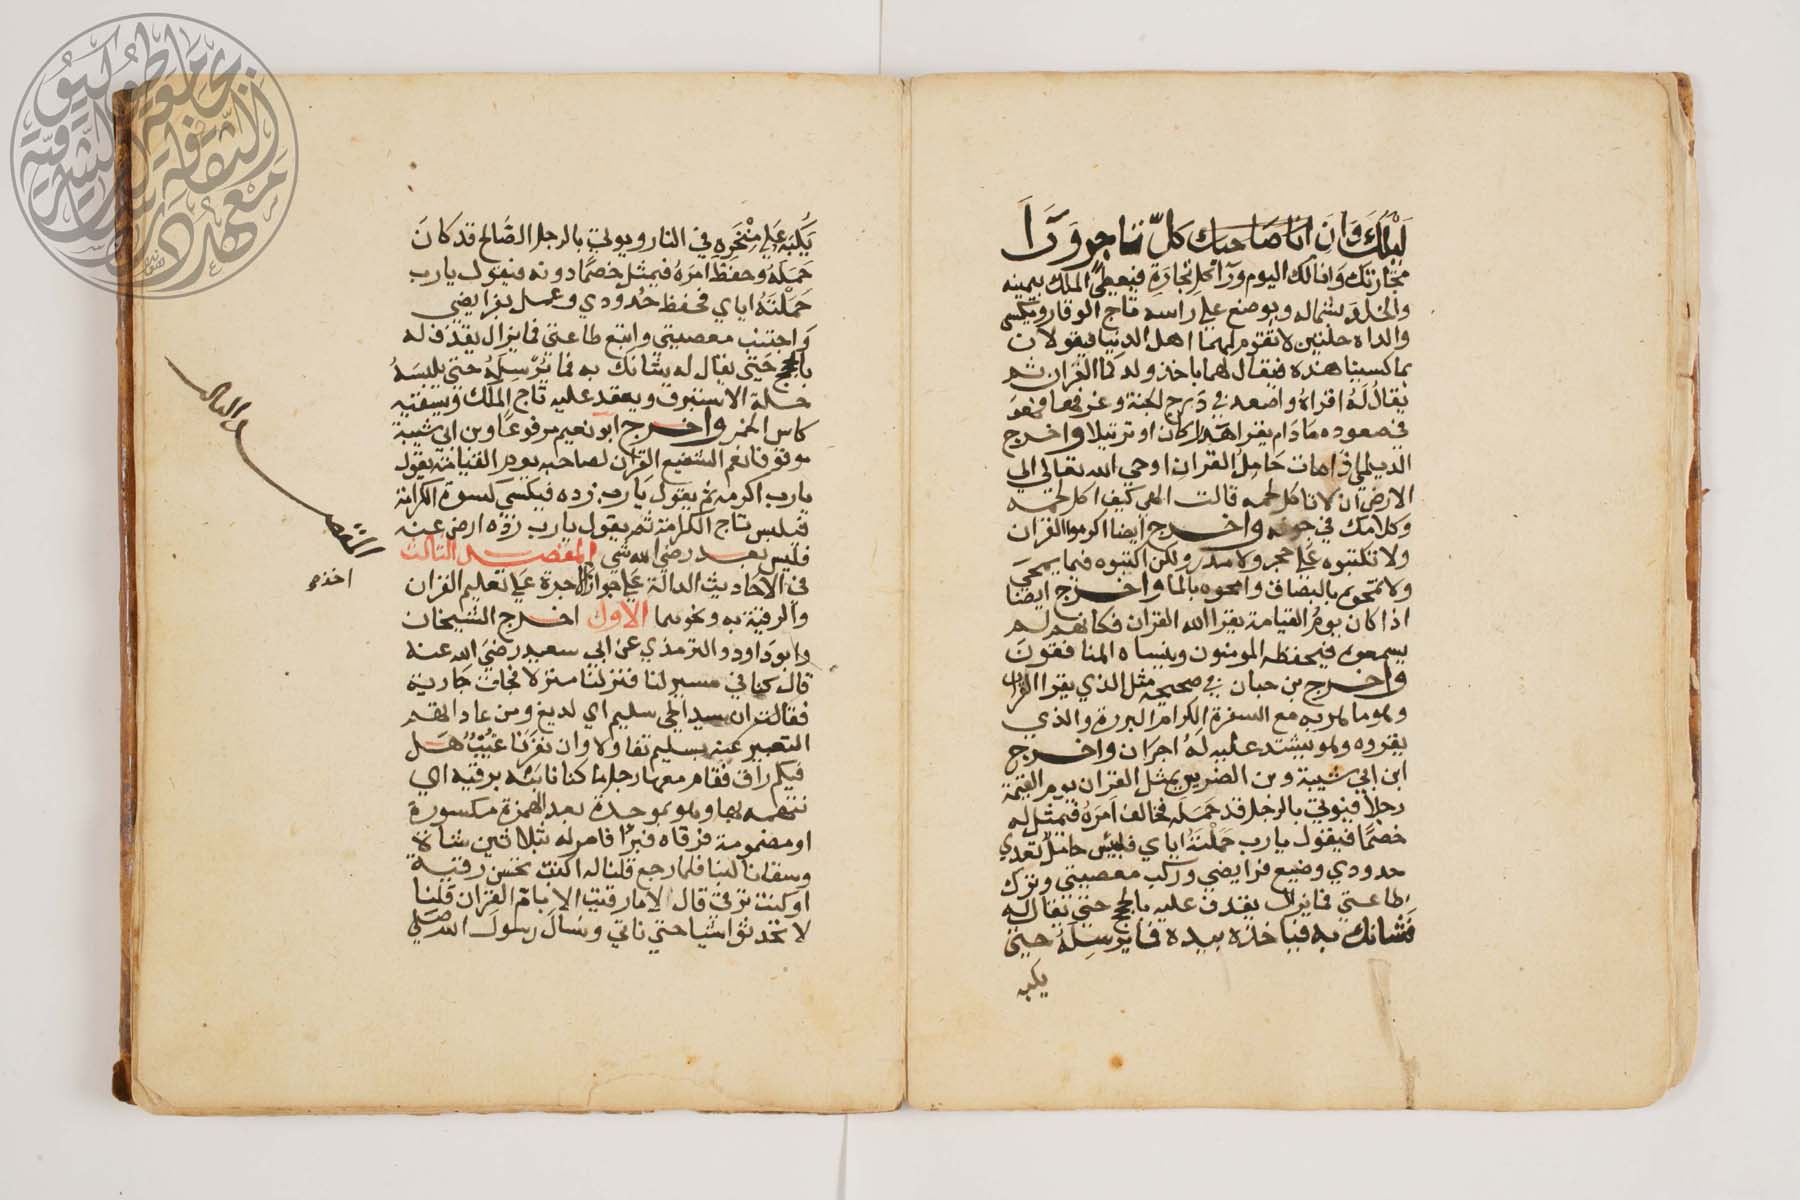 ليلك وان انا صاحبك كل تاجر ورا
تجارتك وانا لك اليوم ورا كل تجارة فيعطى الملك بيمينه
والخلد بشماله ويوضع على راسه تاج الوقار ويكسى
والداه حلتين لا تقوم لهما اهل الدنيا فيقولان
بما كسينا هذه فيقال لهما باخذ ولدكما القران ثم
يقال له اقراه واصعد في درج الجنة وغرفها فهو
في صعوده مادام يقرا هذا كان او ترتيلا واخرج
الديلمي اذا مات حامل القران اوحى الله تعالى الى
الارض ان لا تاكل لحمه قالت الهي كيف اكل لحمه
وكلامك في جوفه واخرج ايضا اكرموا القران
ولا تكتبوه على حجر ولا مدر ولكن اكتبوه فيما يمحى
ولا تمحوه بالبصاق وامحوه بالما واخرج ايضا
اذا كان يوم القيامة يقرا الله القران فكانهم لم
يسمعوه فيحفظه المومنون وينساه المنافقون
واخرج بن حبان في صحيحه مثل الذي يقرا القران
وهو ماهر به مع السفرة الكرام البررة والذي
يقروه وهو يشتد عليه له اجران واخرج
ابن ابي شيبة وبن الضريس يمثل القران يوم القيمة
رجلا فيوتى بالرجل قد حمله فخالف امره فتمثل له
خصما فيقول يارب حملته اياي فلبئس حامل تعدي
حدودي وضيع فرايضي وركب معصيتي وترك
طاعتي فما يزال يقذف عليه بالحجج حتى يقال له
فشانك به فياخذه بيده فما يرسله حتى
يكبه
يكبه على منخره في النار ويوتى بالرجل الصالح قد كان
حمله وحفظ امره فيمثل خصما دونه فيقول يارب
حملته اياي فحفظ حدودي وعمل بفرايضي
واجتنب معصيتي واتبع طاعتي فما يزال يقذف له
بالحجج حتى يقال له شانك به فما يرسله حتى يلبسه
حلة الاستبرق ويعقد عليه تاج الملك ويسقيه
كاس الخمر واخرج ابو نعيم مرفوعا وبن ابي شيبة
موقوفا نعم الشفيع القران لصاحبه يوم القيامة يقول
يارب اكرمه ثم يقول يارب زده فيكسى كسوة الكرامة
فيلبس تاج الكرامة ثم يقول يارب زده ارض عنه
فليس بعد رضى الله شي المقصد الثالث
في الاحاديث الدالة على جواز الاجرة على تعليم القران
والرقية به ونحوهما الاول اخرج الشيخان
وابو داود والترمذي عن ابي سعيد رضي الله عنه
قال كنا في مسير لنا فنزلنا منزلا فجات جارية
فقالت ان سيد الحي سليم اي لديغ ومن عاداتهم
التعبير عنه بسليم تفاولا وان نفرنا غيب هل
فيكم راق فقام معها رجل ما كنا نابنه برقية اي
نتهمه بها وهو بموحدة بعد الهمزة مكسورة
او مضمومة فرقاه فبرا فامر له بثلاثين شاة
وسقانا لبنا فلما رجع قلنا له اكنت تحسن رقية
او كنت ترقي قال لا ما رقيت الا بام القران قلنا
لا تحدثوا شيا حتى ناتي ونسال رسول الله صلى